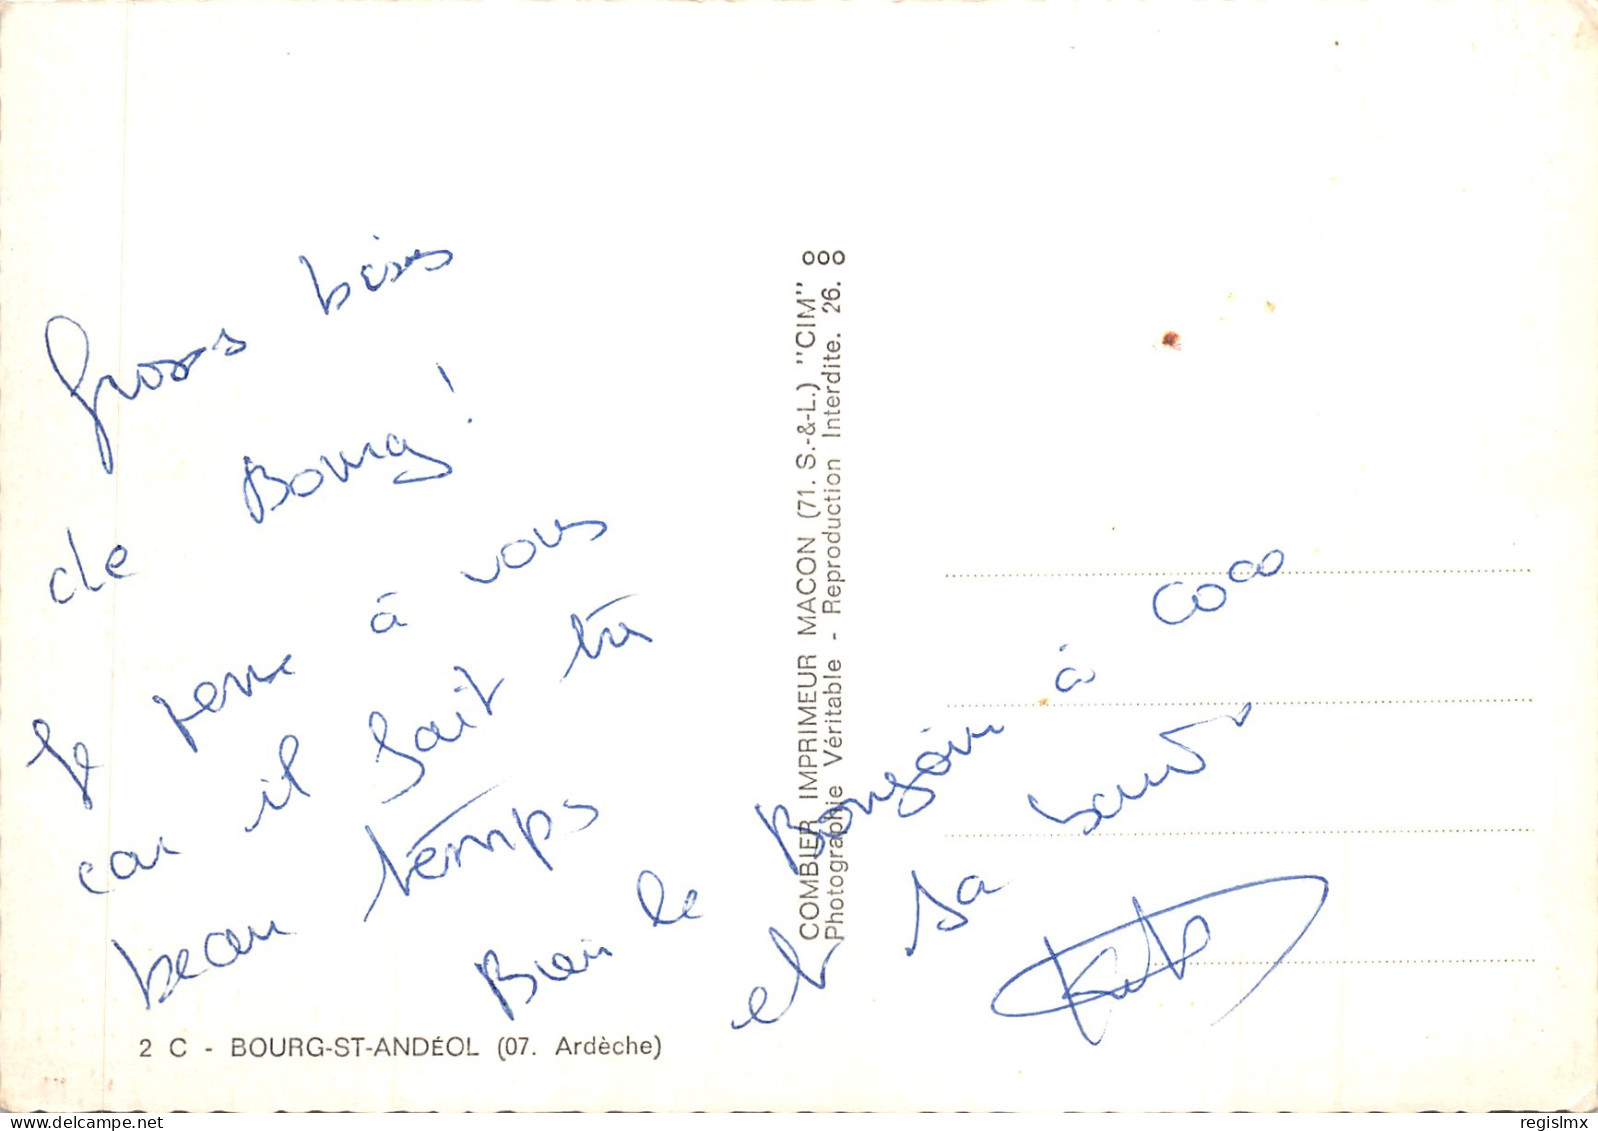 Gross bises
de Bourg!
Je pense à vous
car il fait très
beau temps
Bien le Bonjour à Coco
et sa
2 C - BOURG-ST-ANDÉOL (07. Ardèche)
COMBIER IMPRIMEUR MACON (71. S.-&-L.) "CIM"
Photographie Véritable - Reproduction Interdite. 26.
regislmx